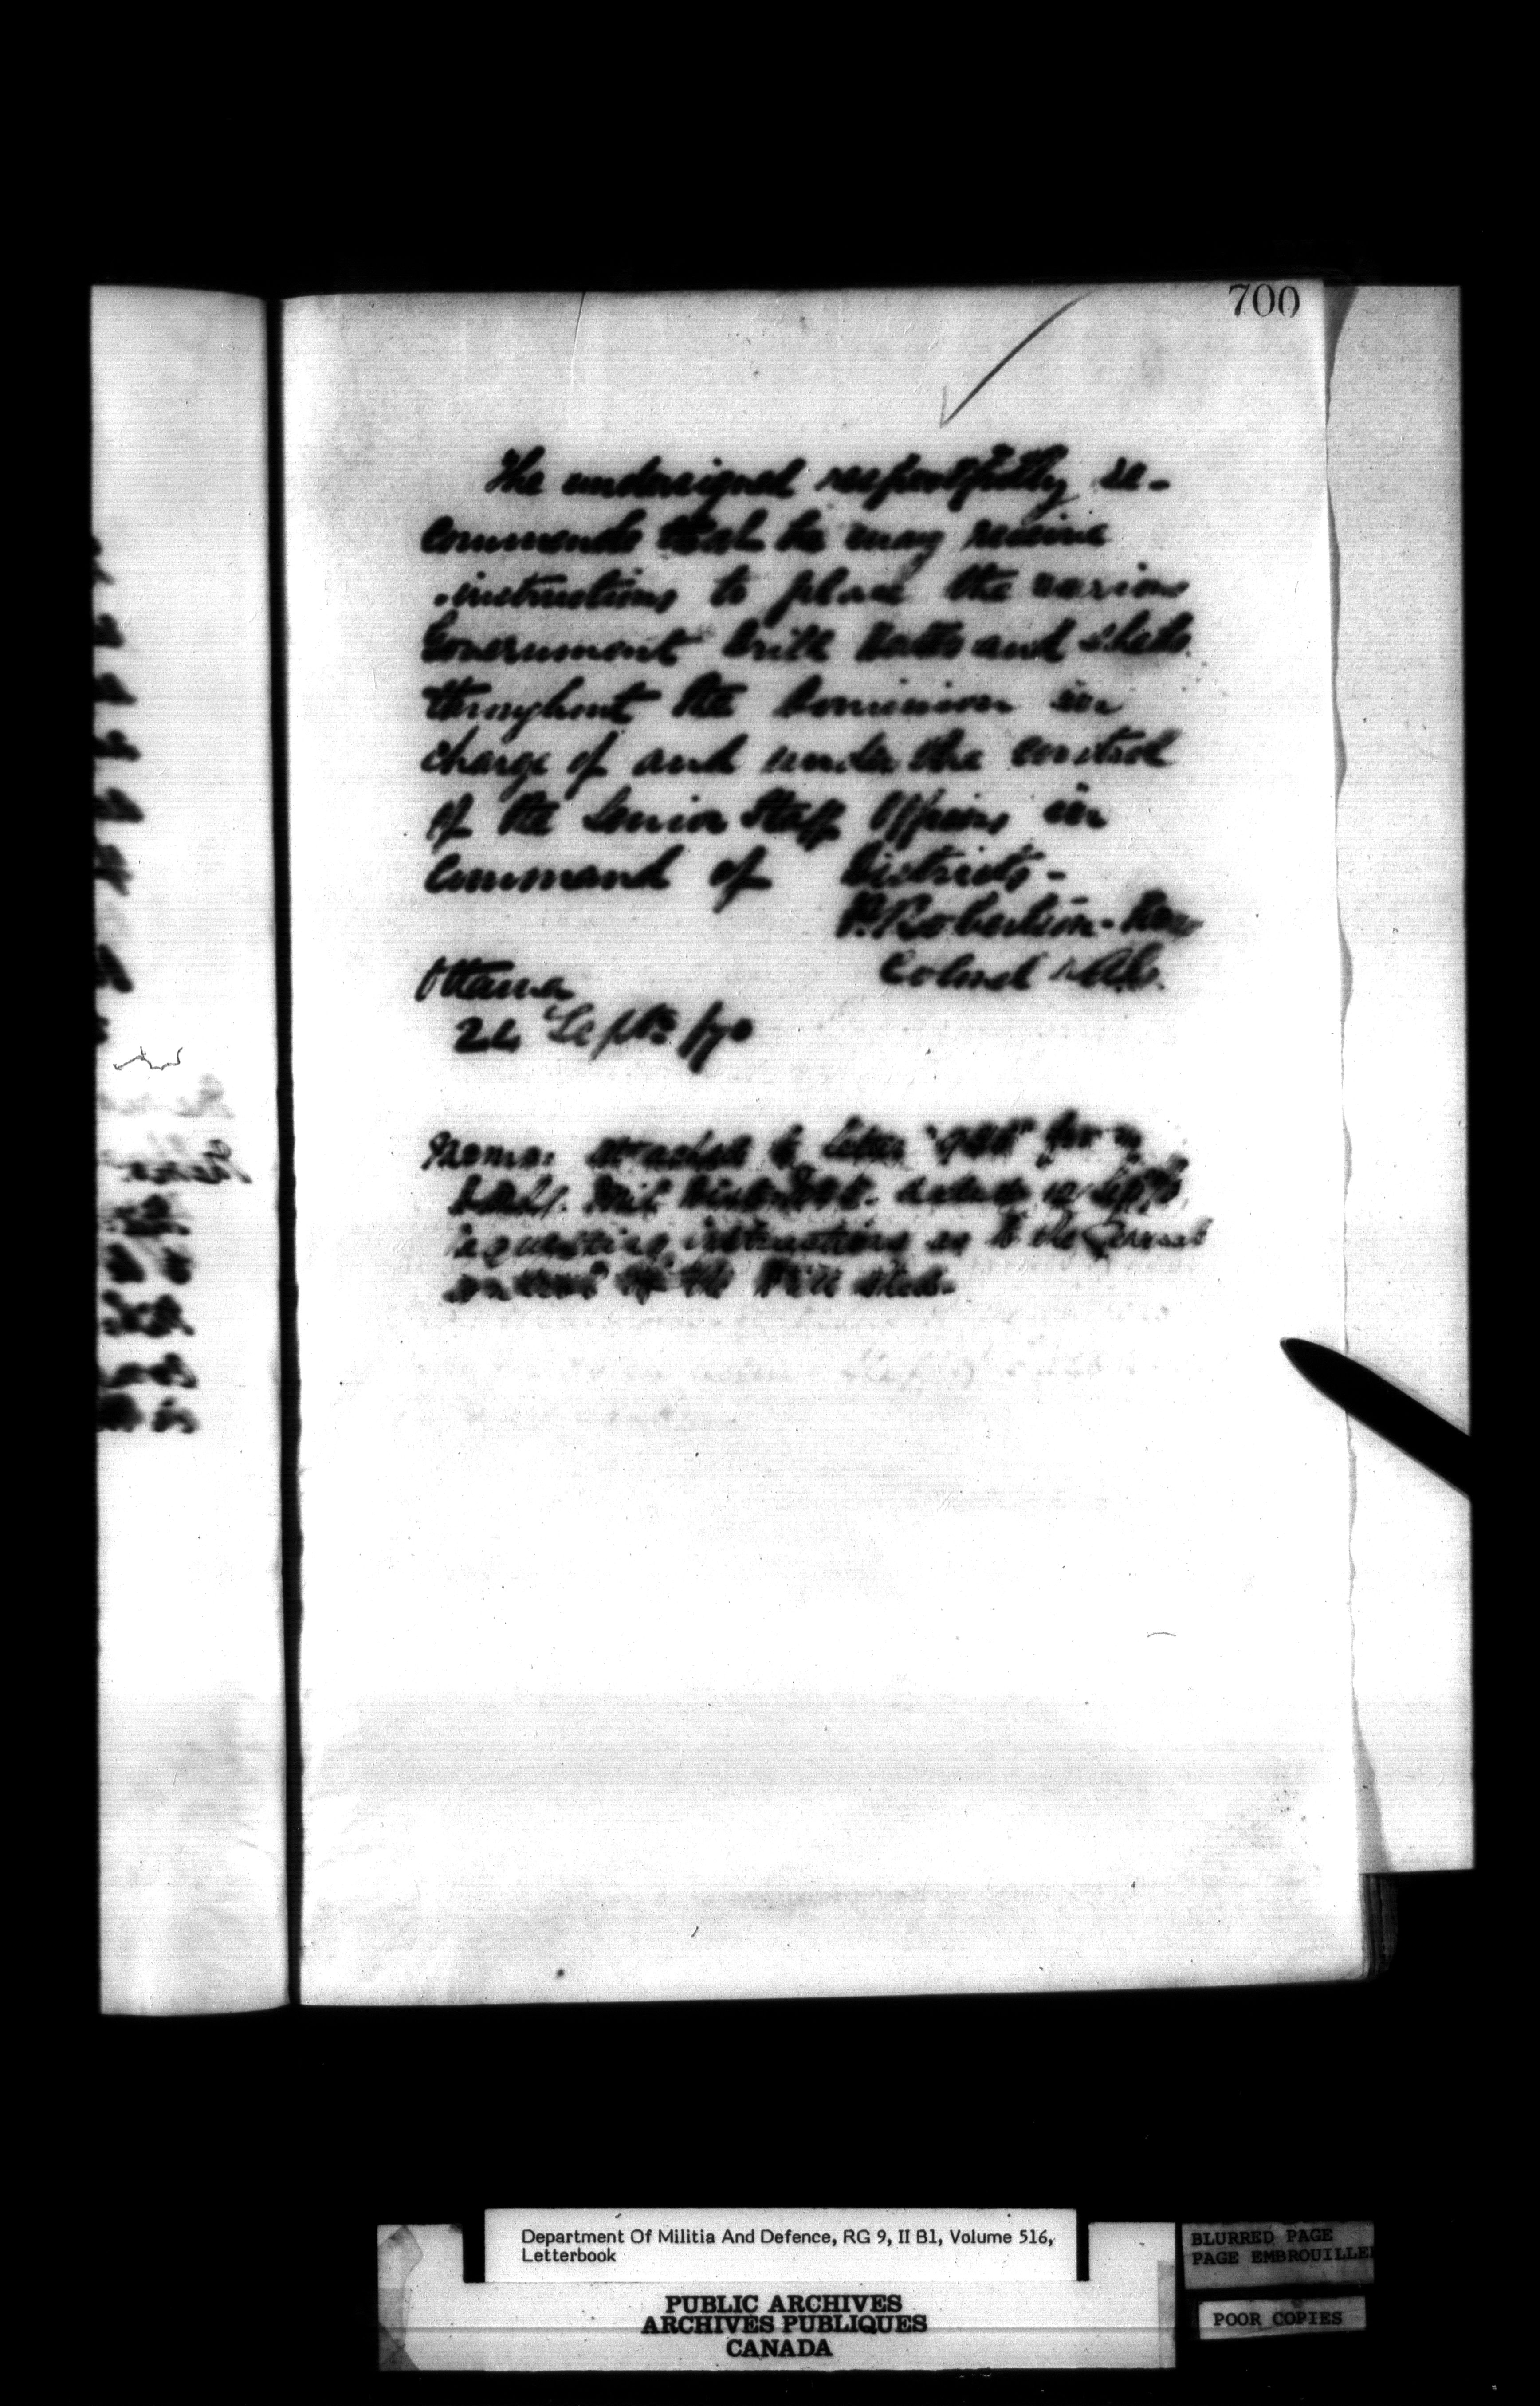 700
The undersigned respectfully re-
commends that he may receive
instructions to place the various
Government Drill Halls and sheds
throughout the Dominion in
charge of and under the control
of the Senior Staff Officers in
Command of Districts -
P. Robertson-Ross
Colonel & A.G.
Ottawa
24 Septr /70
Memo: attached to letter from
dated 12 Septr
requesting instructions as to the
control of the Drill shed -
Department Of Militia And Defence, RG 9, II B1, Volume 516,
Letterbook
PUBLIC ARCHIVES
ARCHIVES PUBLIQUES
CANADA
BLURRED PAGE
PAGE EMBROUILLEE
POOR COPIES